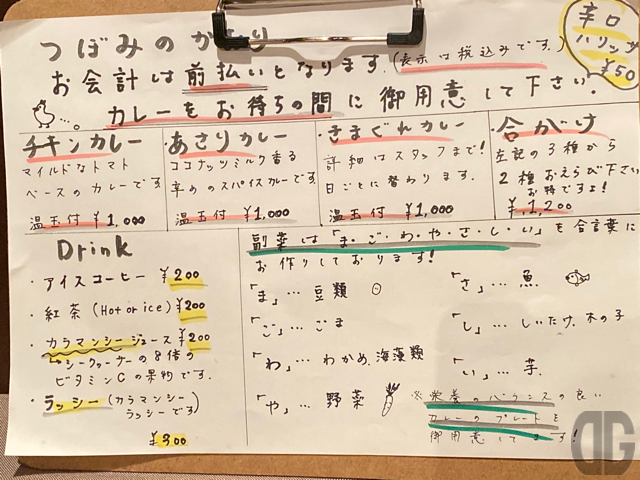 つぼみの
お会計は前払いとなります。(表示は税込みです。)
カレーをお待ちの間に御用意して下さい。
辛口
¥50
チキンカレー
マイルドなトマト
ベースのカレーです。
温玉付 ¥1,000
あさりカレー
ココナッツミルク香る
辛めのスパイスカレーです。
温玉付 ¥1,000
・きまぐれカレー
詳細はスタッフまで!
日ごとに替わります。
温玉付 ¥1,000
・合がけ
左記の3種から
2種おえらび下さい
お得ですよ!
¥1,200
Drink
・アイスコーヒー ¥200
・紅茶(Hot or ice) ¥200
・カラマンシージュース ¥200
シークワーサーの8倍の
ビタミンCの果物です。
・ラッシー(カラマンシー
ラッシーです)
¥300
副菜は「ま・ご・わ・や・さ・し・い」を合言葉に
お作りしております!
「ま」…豆類
「ご」…ごま
「わ」…わかめ、海藻類
「や」…野菜
「さ」…魚
「し」…しいたけ、木の子
「い」…芋
※栄養のバランスの良い
カレーのプレートを
御用意してます!
DG